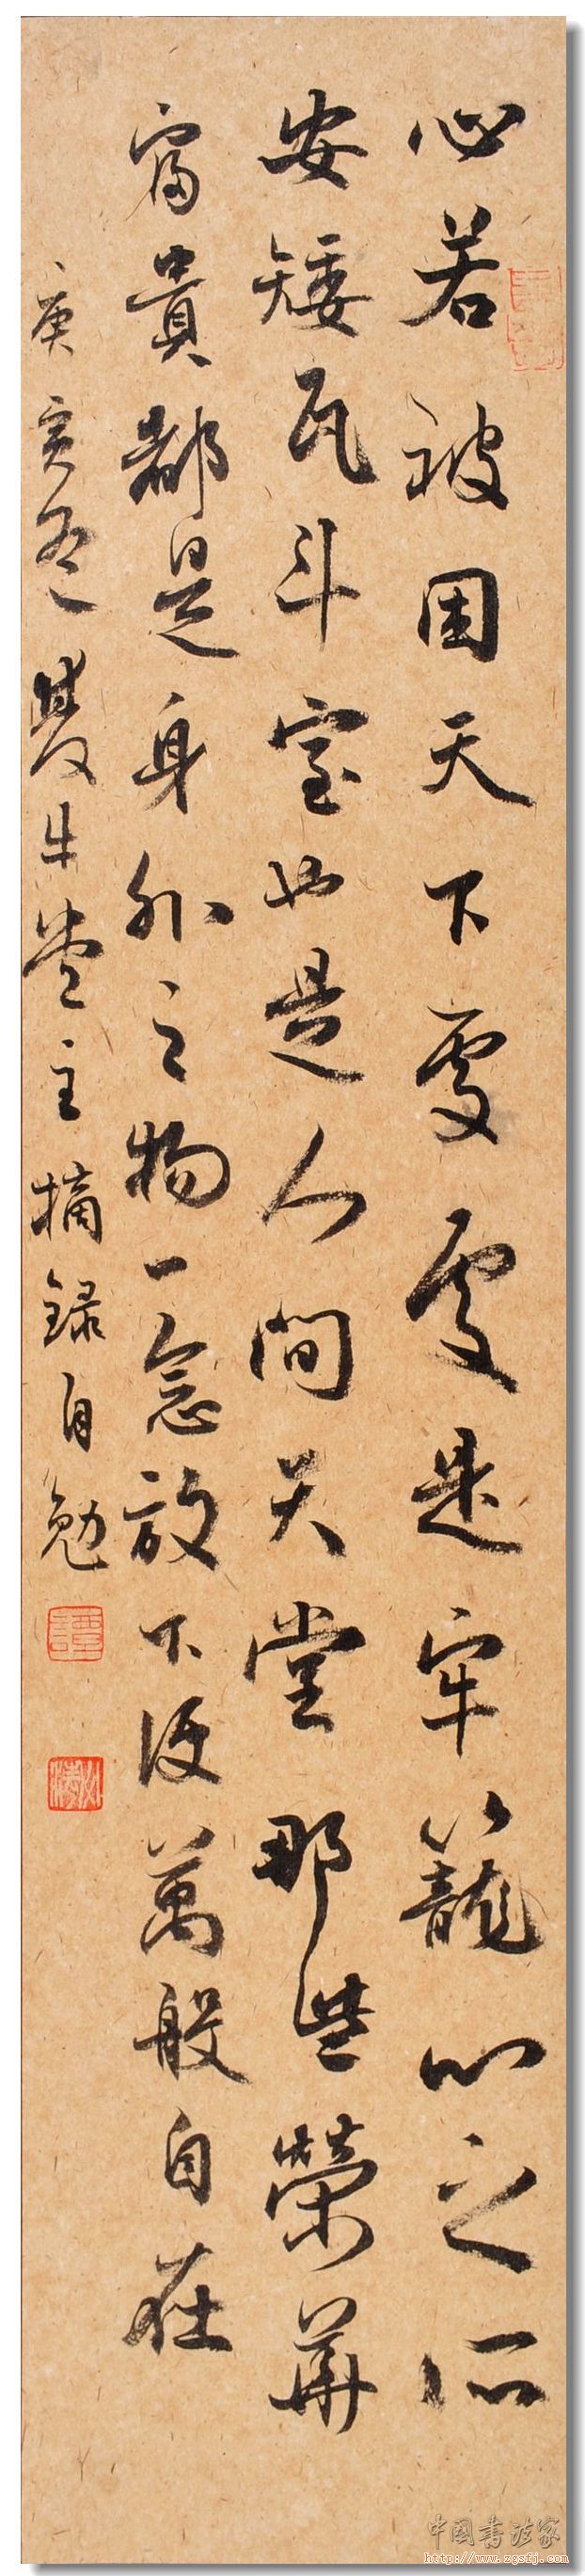 心若被困天下處處是牢籠心之所
安矮瓦斗室也是人間天堂那些榮華
富貴都是身外之物一念放下便萬般自在
庚寅 牛堂主摘録自勉
中國書法家
http://www.zgsfj.com